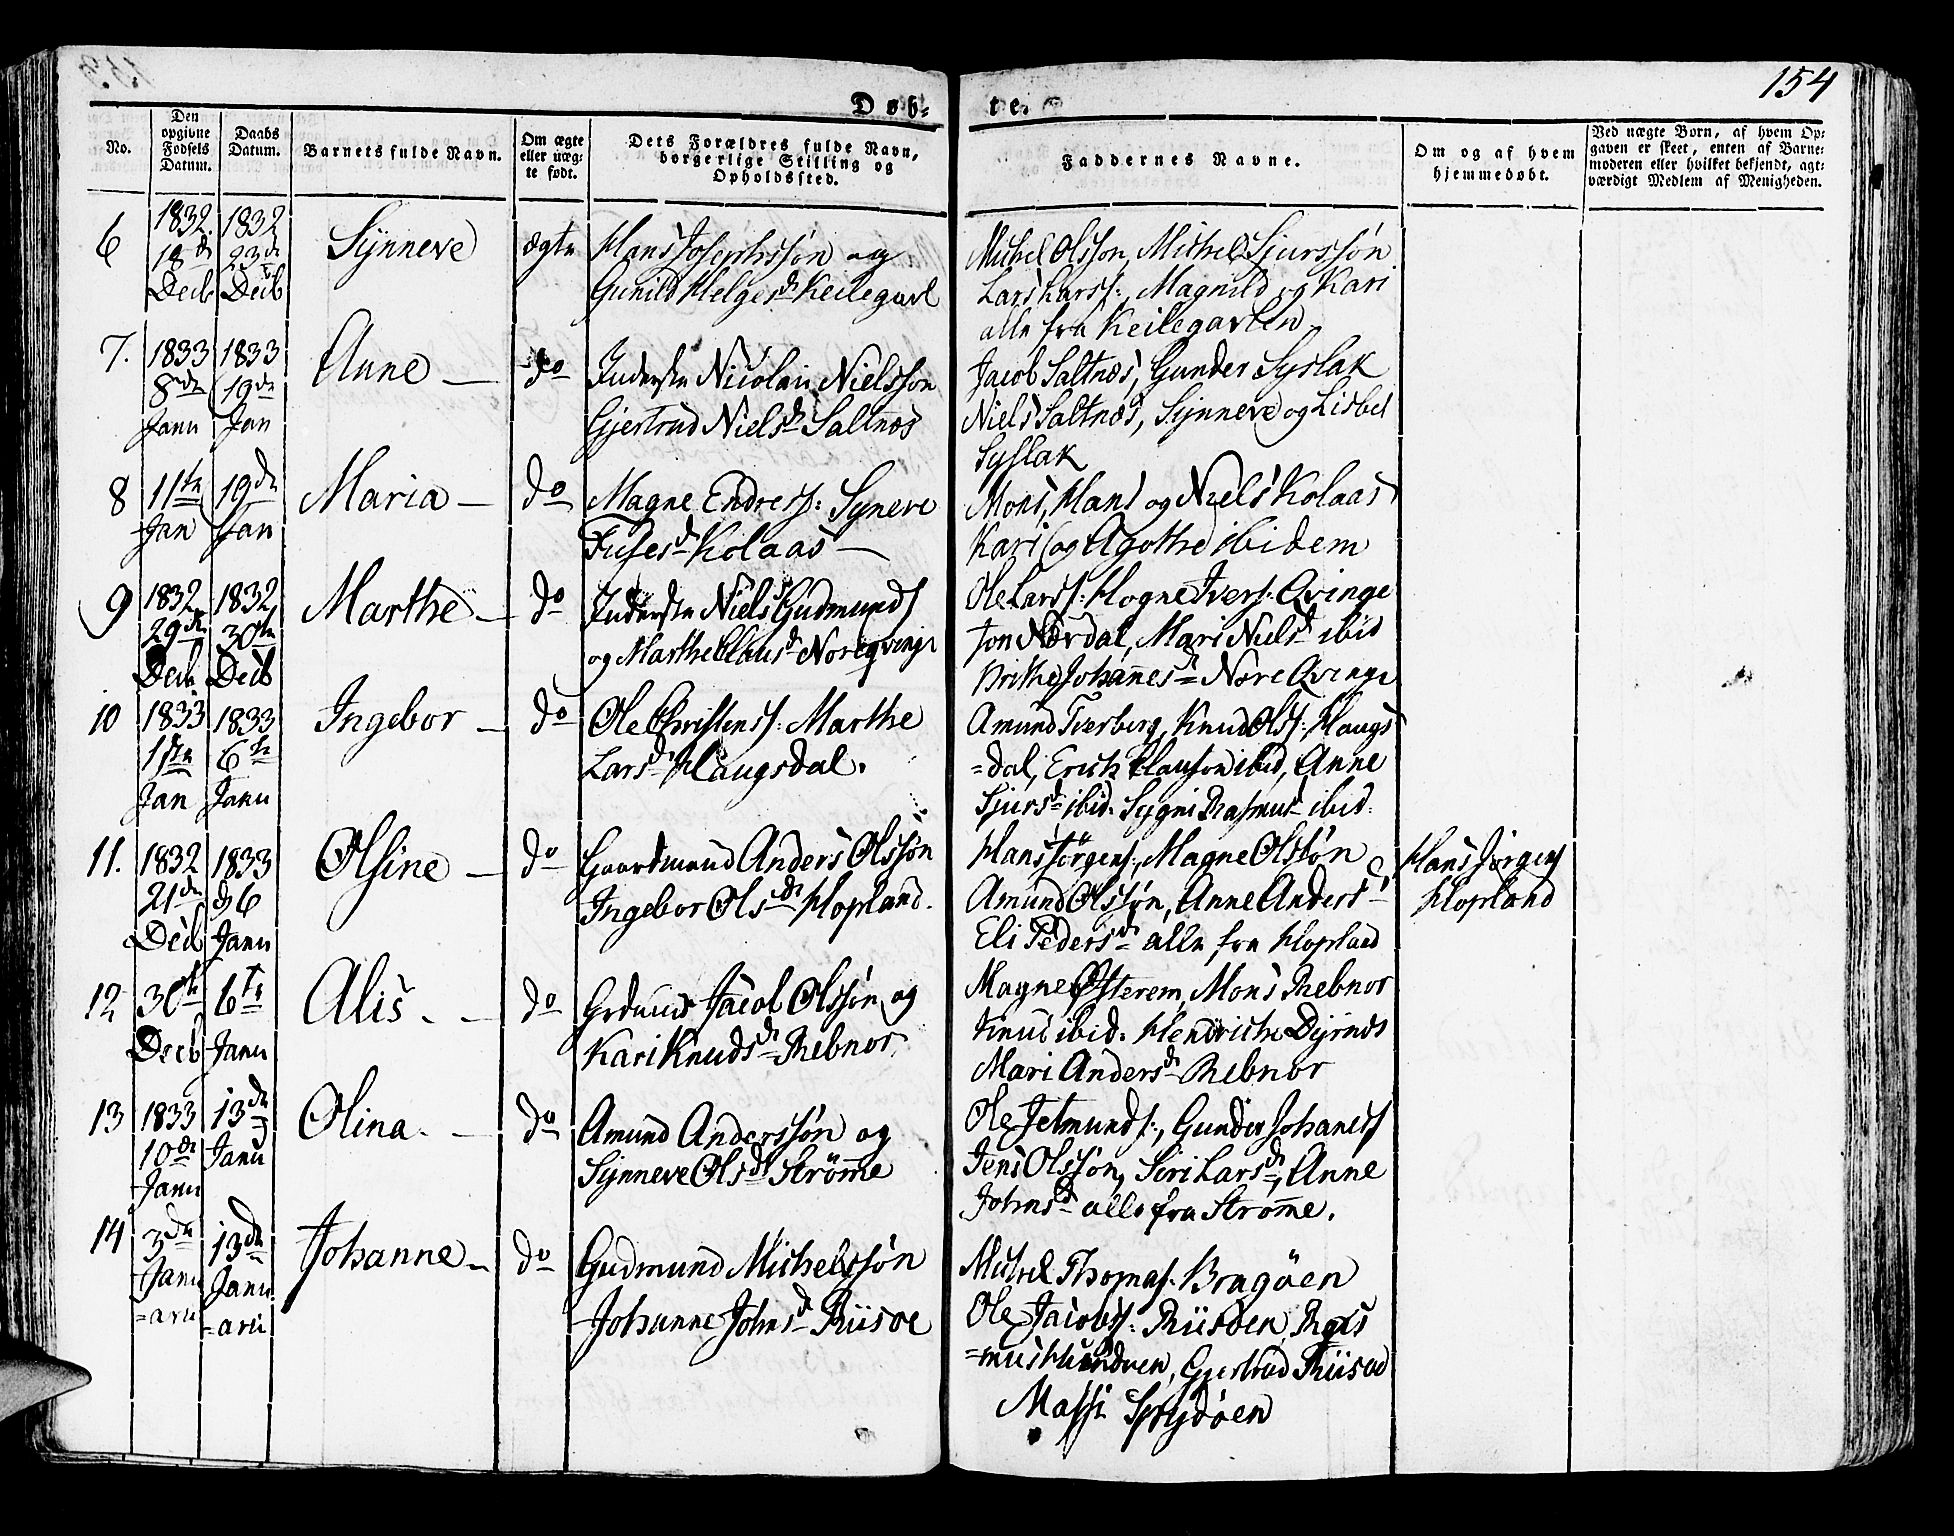 154
Døb-
te.
No.
Den opgivne Fødsels Datum.
Daabs Datum.
Barnets fulde Navn.
Om ægte eller uæg-te født.
Dets Forældres fulde Navn, borgerlige Stilling og Opholdssted.
Faddernes Navne.
Om og af hvem hjemmedøbt.
Ved uægte Børn, af hvem Op-
gaven er skeet, enten af Barne-
moderen eller hvilket bekjendt, agt-
værdigt Medlem af Menigheden.
6
1832
18de
Decb
1832
23de
Decb
Synneve
ægte
Hans Josephssøn og
Gunild Helgesd Keilegavl
Michel Olsson, Michel Sjurssøn
Lars Larss: Magnild og Kari
alle fra Keilegavlen
7.
1833
8de
Janu
1833
19de
Jan
Anne
do
Inderste Nicolai Nielsson
Gjertrud Nielsd Saltnæs
Jacob Saltnæs, Gunder Syslak
Niels Saltnæs, Synneve og Lisbet
Syslak
8
11te
Jan
19de
Jan
Maria
do
Magne Endress: Syneve
Fusesd Kolaas
Mons, Hans og Niels Kolaas
Kari og Agothe ibidem
9
1832
29de
Decb
1832
30te
Decb
Marthe
do
Inderste Niels Gudmunds
og Marthe Clausd Noreqvinge
Ole Larss: Hogne Ivers: Qvinge
Jon Nordal, Mari Nielsd ibid
Brithe Johannesd Nore Qvinge
10
1833
1ste
Jan
1833
6te
Janu
Ingebor
do
Ole Christenss: Marthe
Larsd Haugsdal.
Amund Tverberg, Knud Olss: Haugs
=dal, Erich Clauson ibid, Anne
Sjursd ibid. Sygni Rasmusd ibid.
11.
1832
21de
Decb
1833
d 6
Janu
Olsine
do
Gaardmand Anders Olssøn
Ingebor Olsd Hopland.
Hans Jørgens:, Magne Olssøn
Amund Olssøn, Anne Andersd
Eli Pedersd alle fra Hopland
Hans Jørgens
Hopland
12
30te
Decb
6te
Janu
Alis
do
Jacob Olssøn og
Kari Knudsd Rebnor
Magne Østerem, Mons Rebnor
Knud ibid. Hendriche Dyrnes
Mari Andersd Rebnor
13
1833
10de
Janu
13de
Janu
Olina
do
Amund Anderssøn og
Synneve Olsd Strømme
Ole Jetmunds:, Gunder Johaness
Jens Olssøn, Siri Larsd, Anne
Johnsd alle fra Strømme.
14
3de
Janu
=arii
13de
Janu
=arii
Johanne
do
Gudmund Michelssøn
Johanne Johnsd Riisøe
Michel Thomas: Bragøen
Ole Jacobs: Riisøen, Ras
=mus Hundven, Gjertrud Riisøe
Massi Spydøen